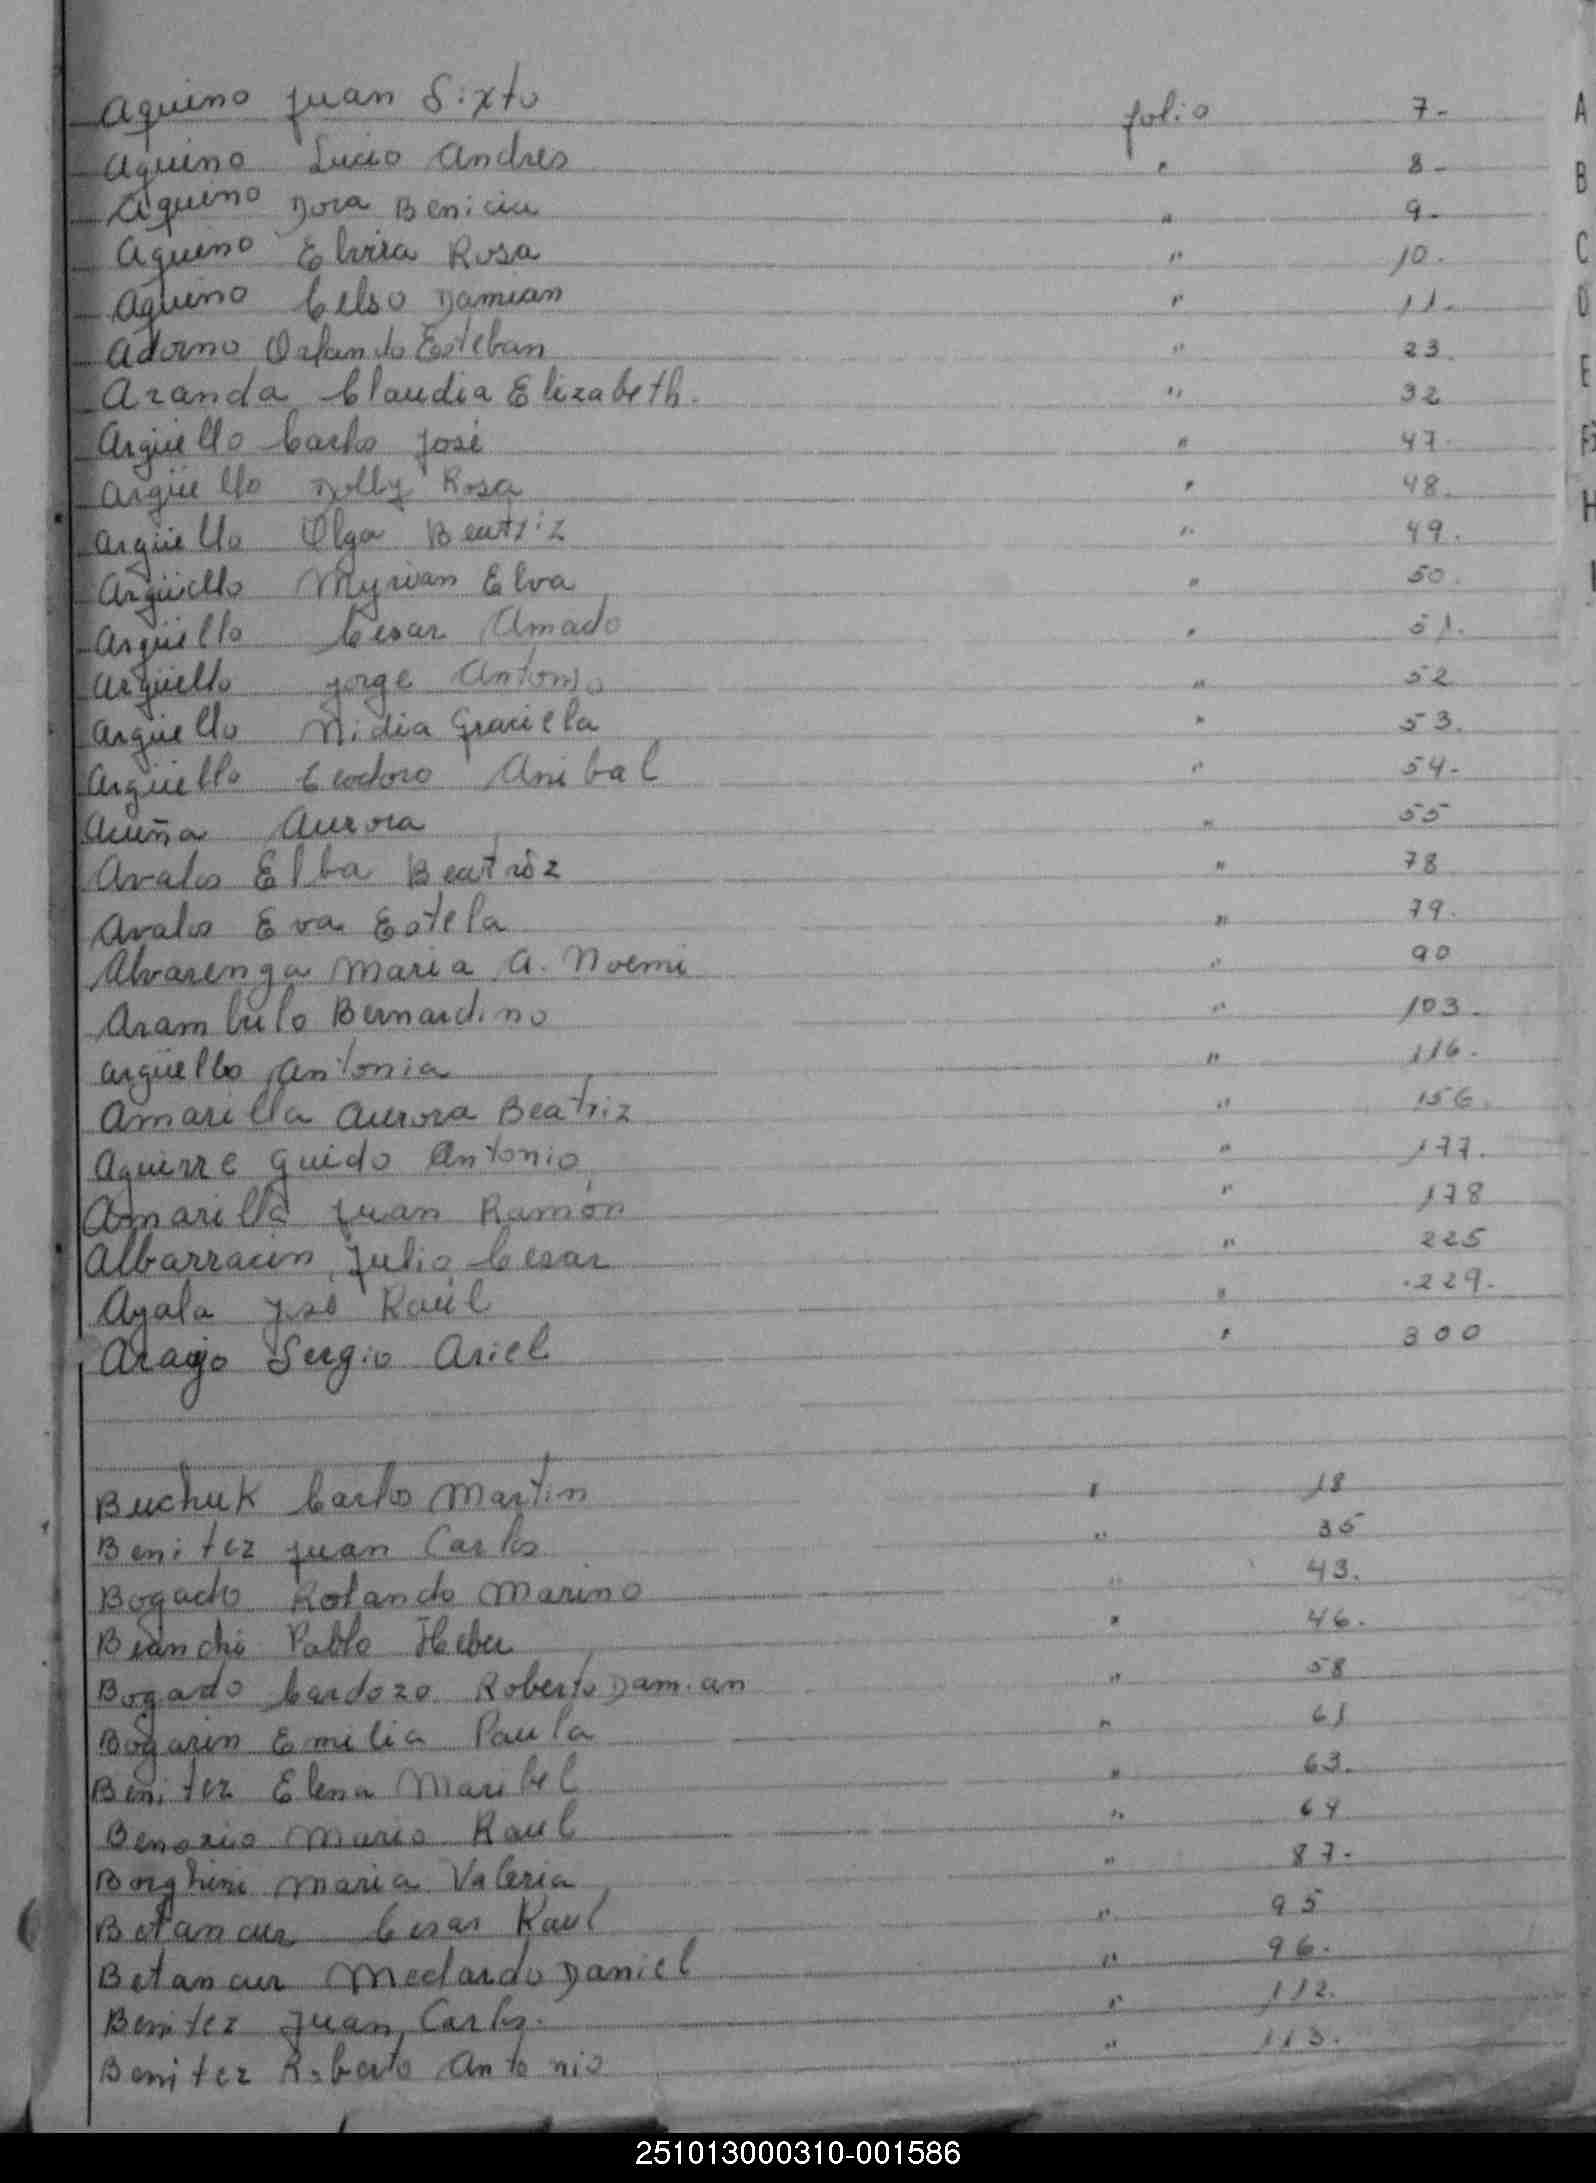 Aquino Juan Sixto folio 7.
Aquino Lucio Andres " 8.
Aquino Dora Benicia " 9.
Aquino Elvira Rosa " 10.
Aquino Celso Damian " 11.
Adorno Orlando Esteban " 23.
Aranda Claudia Elizabeth. " 32
Argüello Carlos José " 47.
Argüello Dolly Rosa " 48.
Argüello Olga Beatriz " 49.
Argüello Myrian Elva " 50.
Argüello Cesar Amado " 51.
Argüello Jorge Antonio " 52
Argüello Nidia Graciela " 53.
Argüello Teodoro Anibal " 54.
Acuña Aurora " 55
Avalos Elba Beatriz " 78
Avalos Eva Estela " 79.
Alvarenga Maria A. Noemi " 90
Arambulo Bernardino " 103.
Argüello Antonia " 116.
Amarilla Aurora Beatriz " 156.
Aguirre Guido Antonio " 177.
Amarilla Juan Ramón " 178
Albarracin, Julio Cesar " 225
Ayala José Raúl " 229.
Araujo Sergio Ariel " 300
Buchuk Carlos Martin " 18
Benitez Juan Carlos " 35
Bogado Rolando Marino " 43.
Bianchi Pablo Heber " 46.
Bogado Cardozo Roberto Damian " 58
Bogarin Emilia Paula " 61
Benitez Elena Maribel " 63.
Mario Raul " 64
Borghini Maria Valeria " 87.
Betancur Cesar Raul " 95
Betancur Medardo Daniel " 96.
Benitez Juan Carlos. " 112.
Benitez Roberto Antonio " 113.
A
B
C
D
E
F
H
I
251013000310-001586